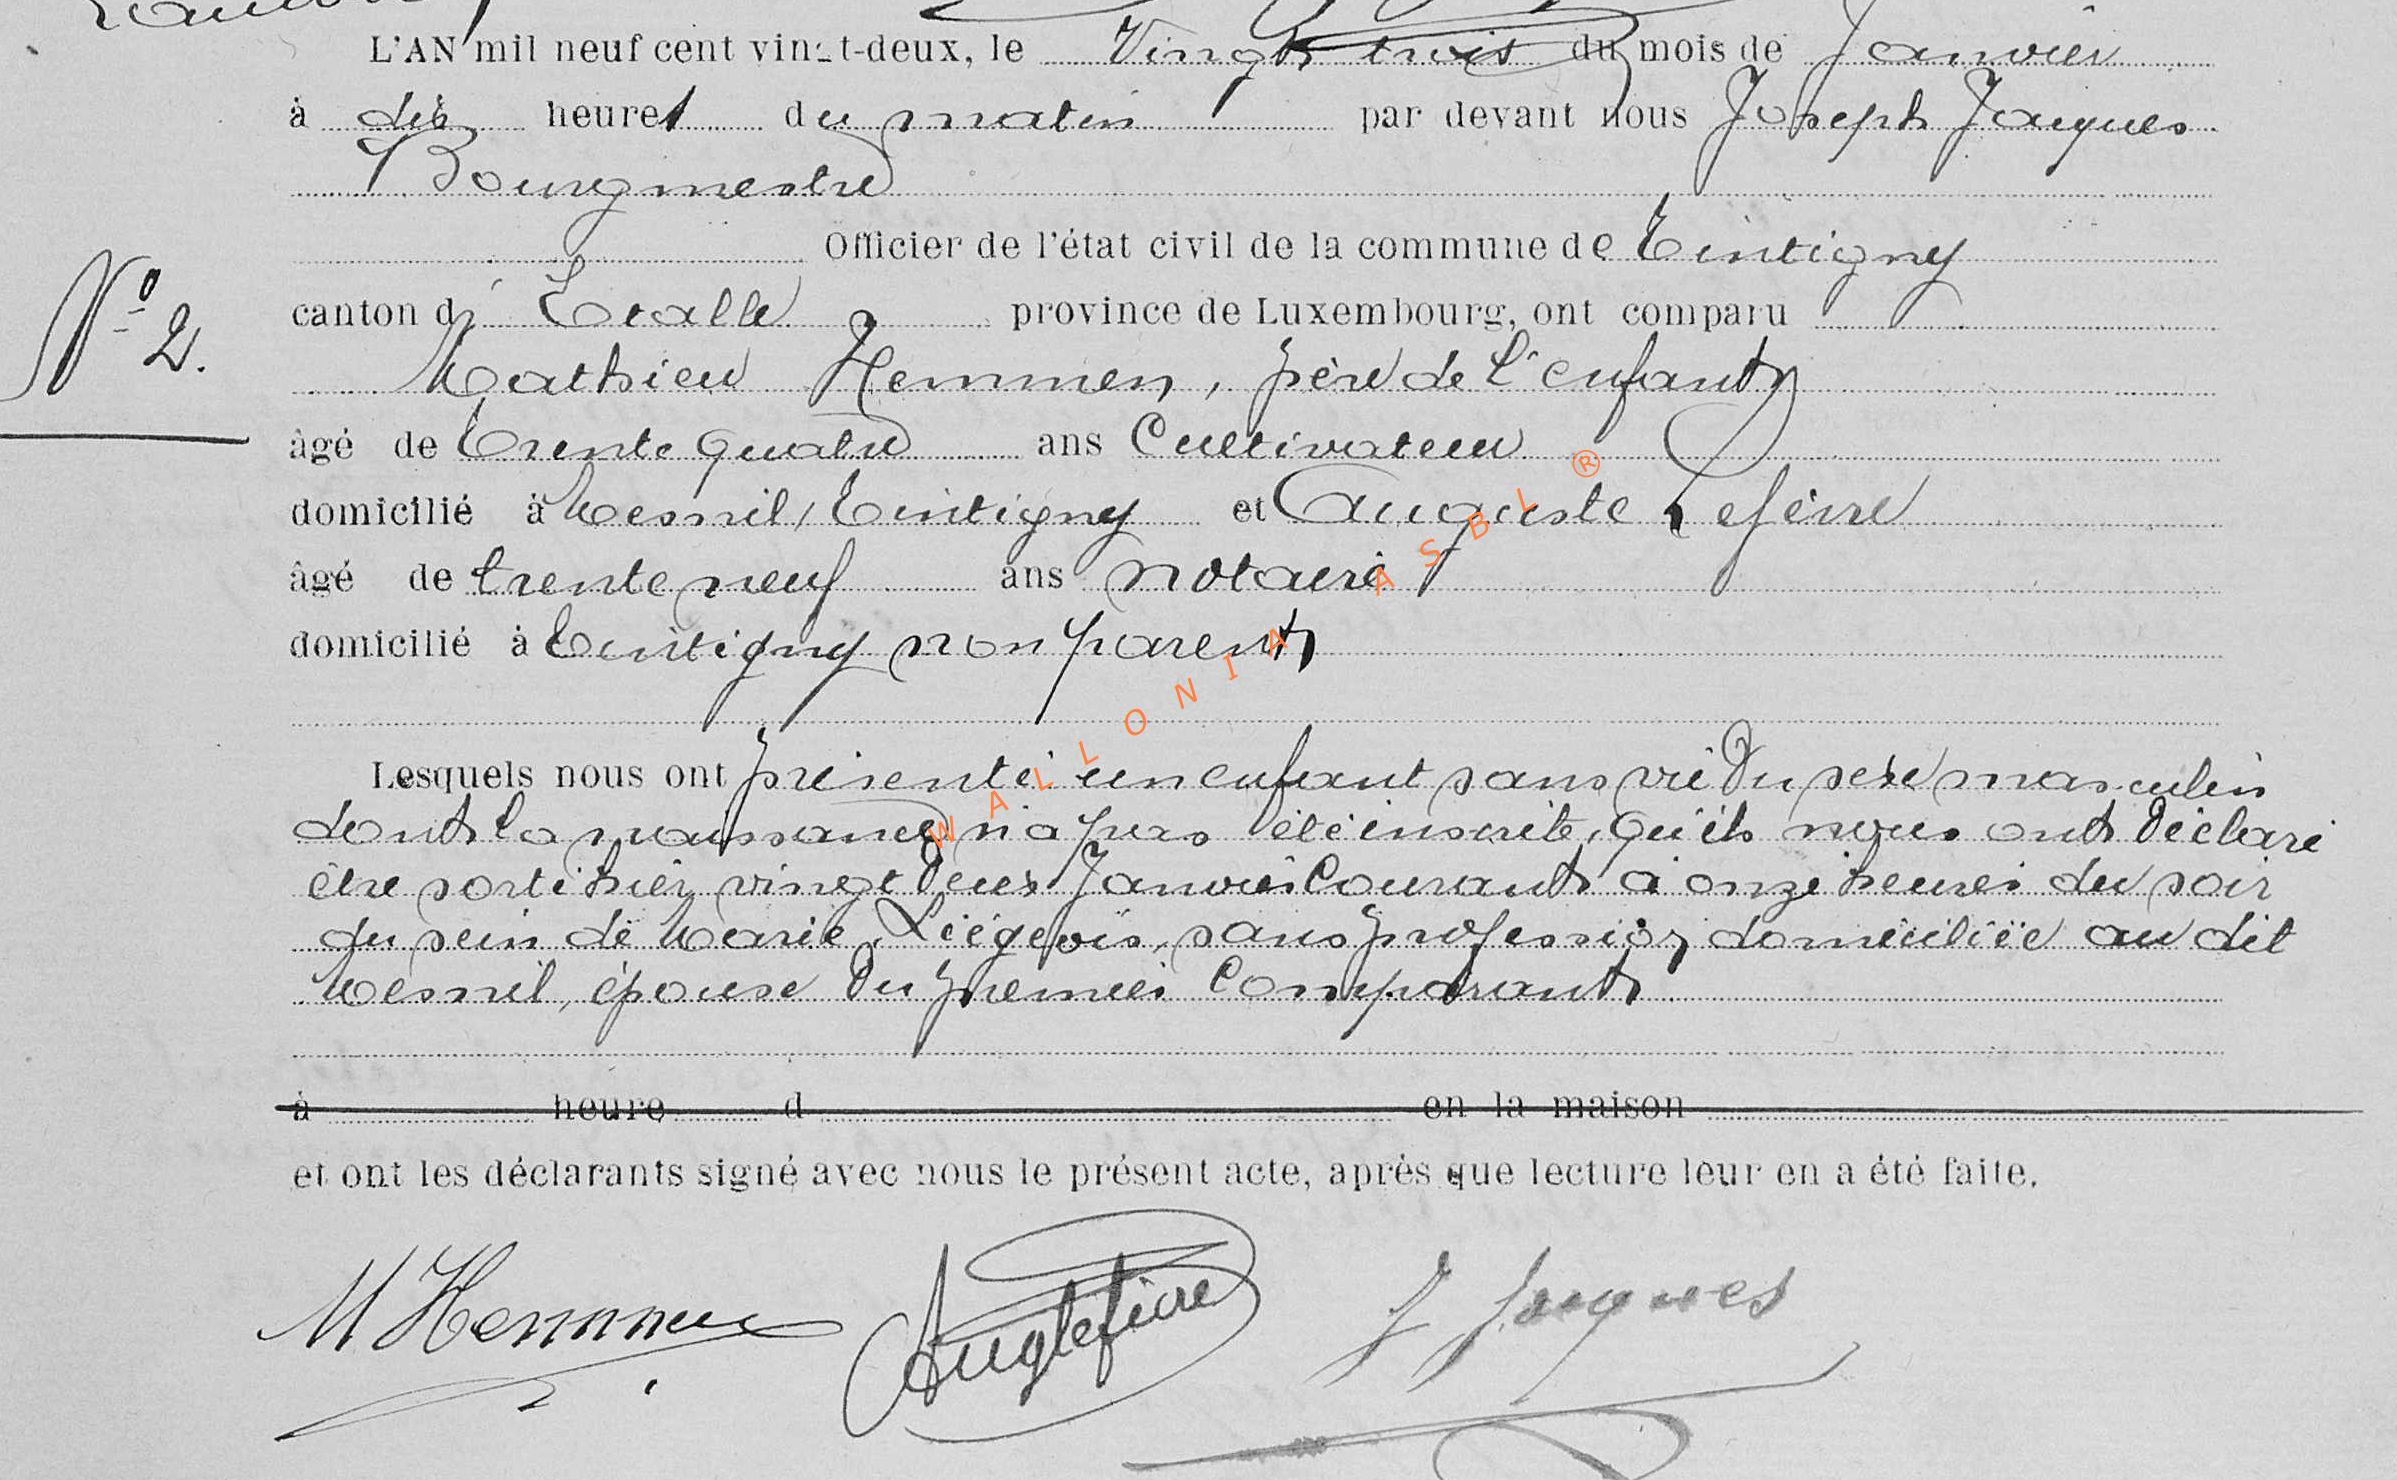 L'AN mil neuf cent vingt-deux, le Vingt trois du mois de Janvier
à dix heures du matin par devant nous Joseph Jacques
Bourgmestre
Officier de l'état civil de la commune de Tintigny
canton d' Etalle province de Luxembourg, ont comparu
N° 2.
Mathieu Hemmen, père de l'enfant
âgé de Trente quatre ans Cultivateur
domicilié à Mesnil, Tintigny et Auguste Lefèvre
âgé de trente neuf ans notaire
domicilié à Tintigny non parent
Lesquels nous ont présenté un enfant sans vie du sexe masculin
dont la naissance n'a pas été inscrite, qu'ils nous ont déclaré
être sorti hier vingt deux Janvier Courant à onze heures du soir
du sein de Marie Liégeois, sans profession domiciliée au dit
Mesnil, épouse du premier Comparant
à heure d en la maison
et ont les déclarants signé avec nous le présent acte, après que lecture leur en a été faite.
M Hemmen Aug Lefèvre J Jacques
WALLONIA ASBL ®